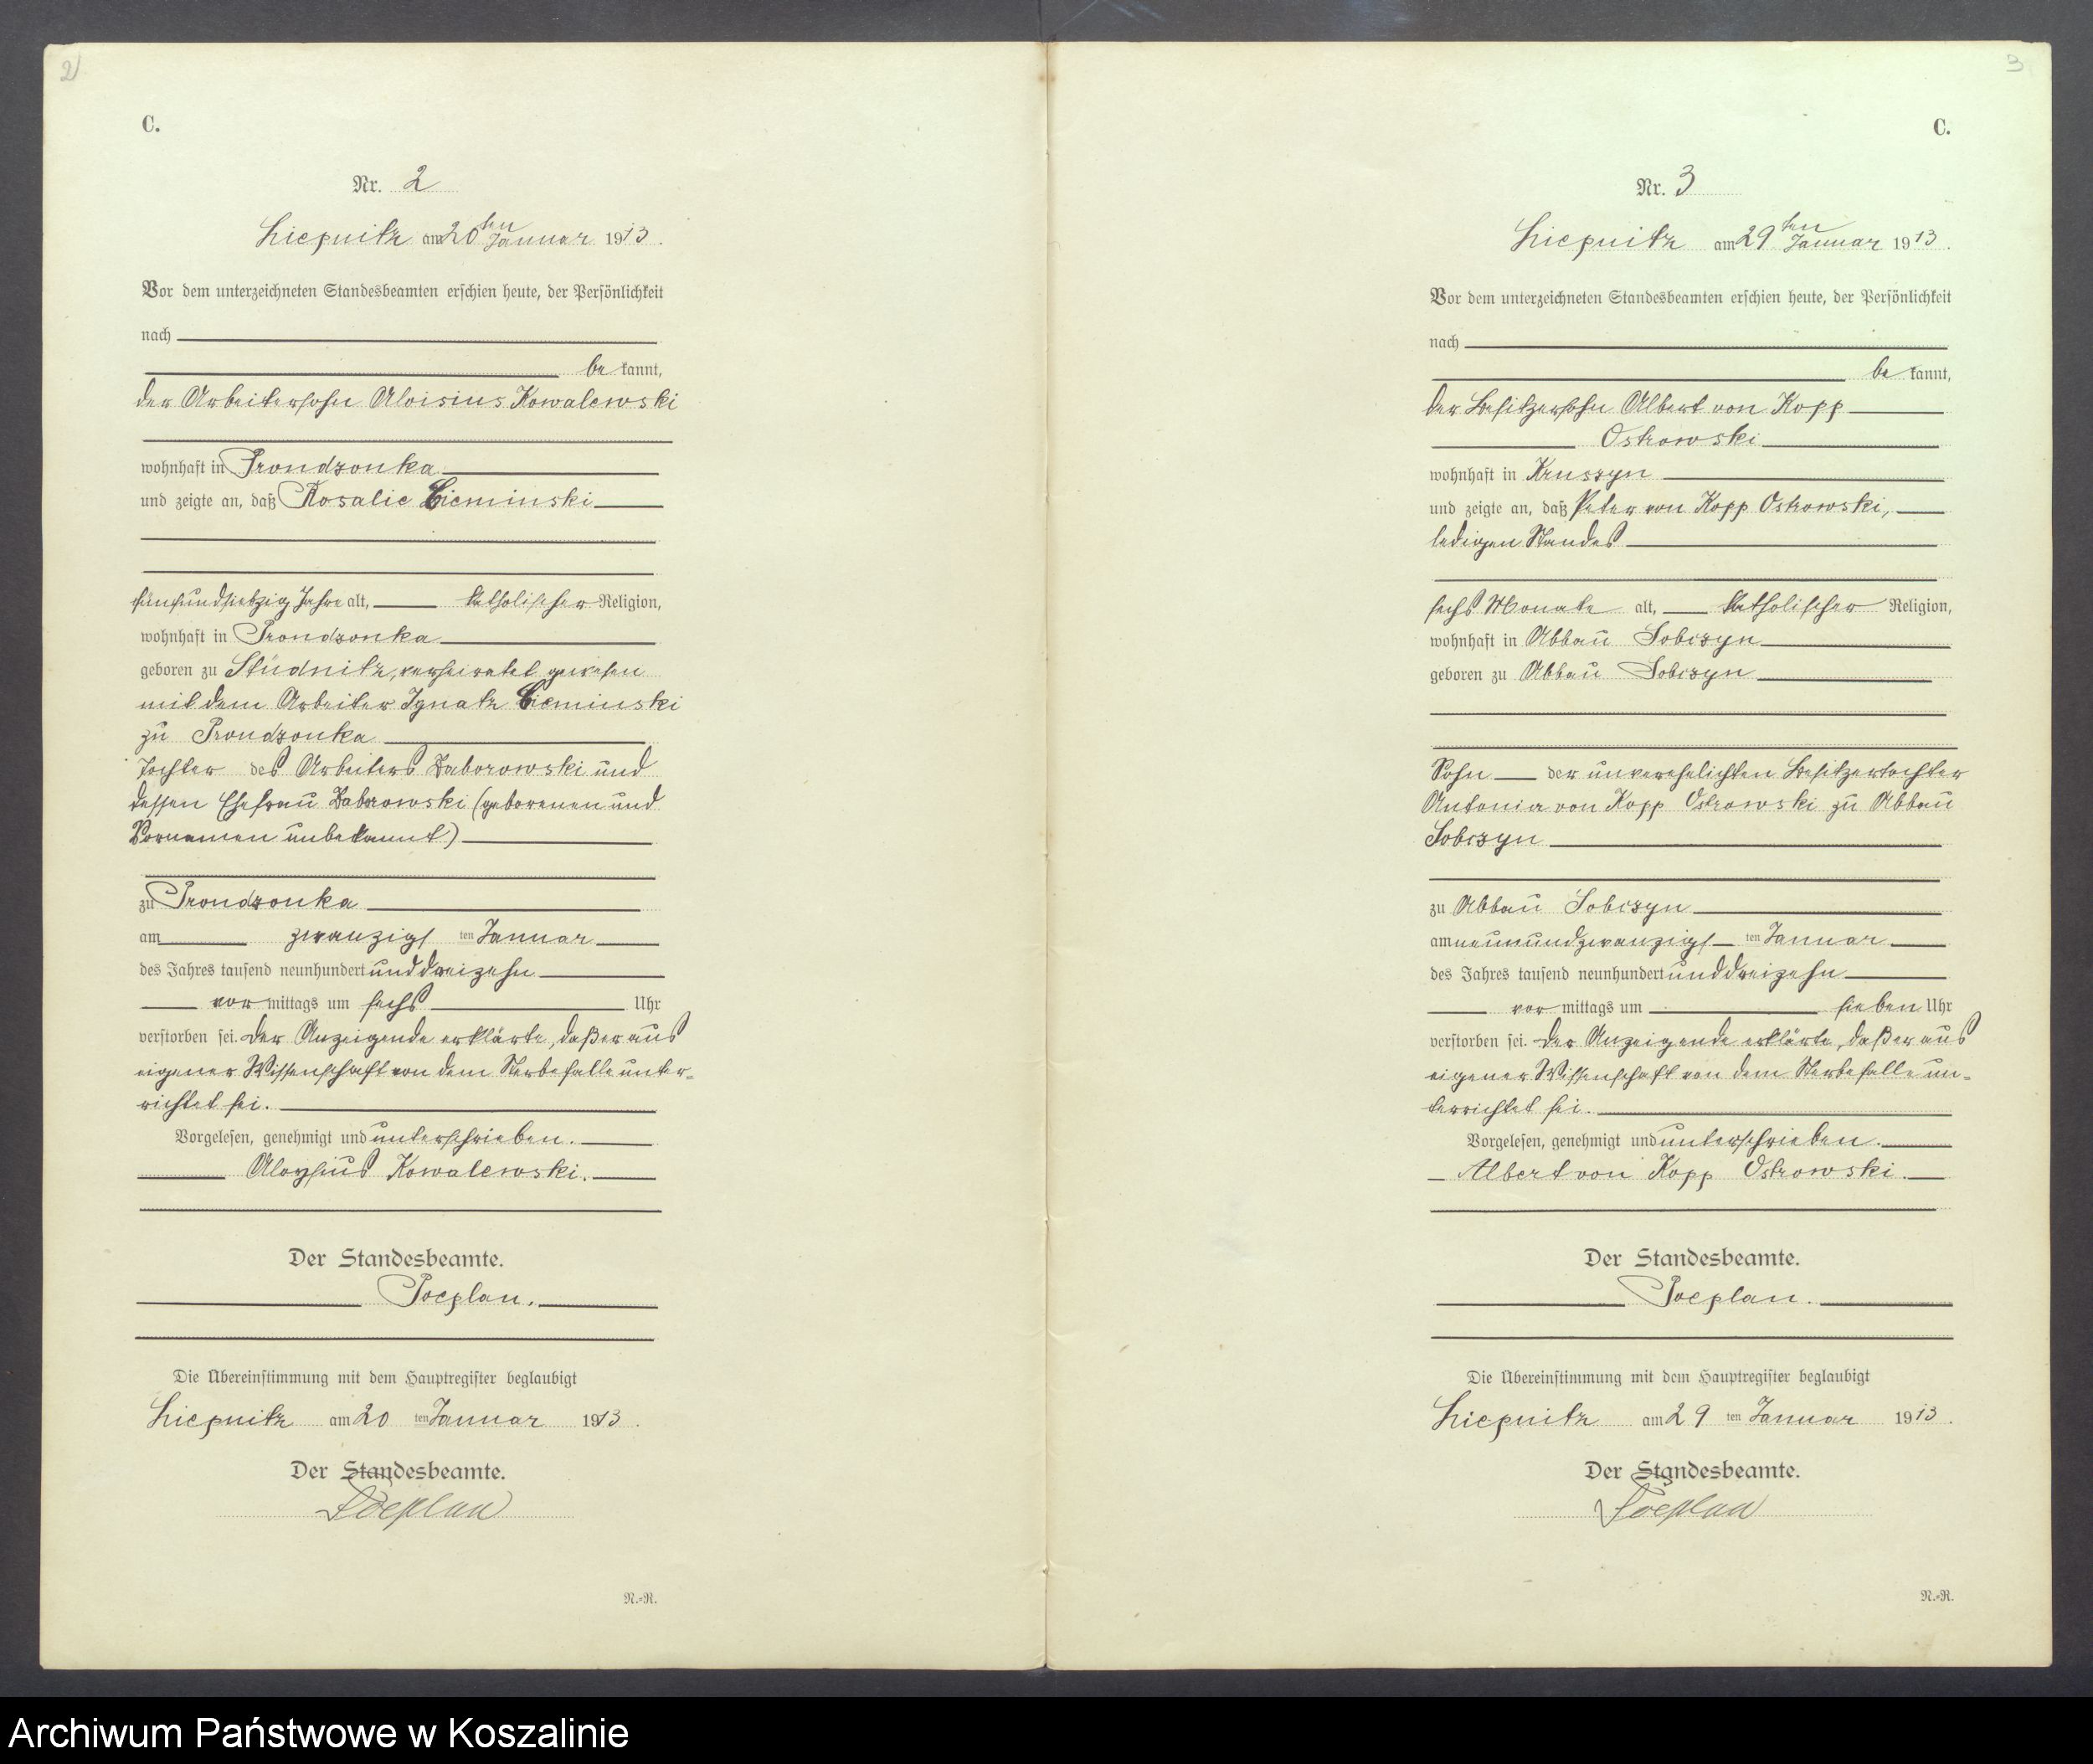 2
C.
Nr. 2
Liepnitz am 20ten Januar 1913.
Vor dem unterzeichneten Standesbeamten erschien heute, der Persönlichkeit
nach
be kannt,
der Arbeitersohn Aloisius Kowalewski
wohnhaft in Prondzonka
und zeigte an, daß Rosalie Cieminski
fünfundsiebzig Jahre alt, katholischer Religion,
wohnhaft in Prondzonka
geboren zu Studnitz, verheiratet gewesen
mit dem Arbeiter Ignatz Cieminski
zu Prondzonka
Tochter des Arbeiters Zaborowski und
dessen Ehefrau Zaborowski (geborenen und
Vornamen unbekannt)
zu Prondzonka
am zwanzigs ten Januar
des Jahres tausend neunhundert und dreizehn
vor mittags um sechs Uhr
verstorben sei. Der Anzeigende erklärte, daß er aus
eigener Wissenschaft von dem Sterbefalle unter-
richtet sei.
Vorgelesen, genehmigt und unterschrieben.
Aloysius Kowalewski.
Der Standesbeamte.
Toeplan.
Die Übereinstimmung mit dem Hauptregister beglaubigt
Liepnitz am 20 ten Januar 1913.
Der Standesbeamte.
Toeplan
N.-R.
3
C.
Nr. 3
Liepnitz am 29ten Januar 1913.
Vor dem unterzeichneten Standesbeamten erschien heute, der Persönlichkeit
nach
be kannt,
der Besitzersohn Albert von Kopp
Ostrowski
wohnhaft in Kruszyn
und zeigte an, daß Peter von Kopp Ostrowski,
ledigen Standes
sechs Monate alt, katholischer Religion,
wohnhaft in Abbau Sobczyn
geboren zu Abbau Sobczyn
Sohn der unverehelichten Besitzertochter
Antonia von Kopp Ostrowski zu Abbau
Sobczyn
zu Abbau Sobczyn
am neunundzwanzigs ten Januar
des Jahres tausend neunhundert und dreizehn
vor mittags um sieben Uhr
verstorben sei. Der Anzeigende erklärte, daß er aus
eigener Wissenschaft von dem Sterbefalle un-
terrichtet sei.
Vorgelesen, genehmigt und unterschrieben.
Albert von Kopp Ostrowski.
Der Standesbeamte.
Toeplan.
Die Übereinstimmung mit dem Hauptregister beglaubigt
Liepnitz am 29 ten Januar 1913.
Der Standesbeamte.
Toeplan
N.-R.
Archiwum Państwowe w Koszalinie